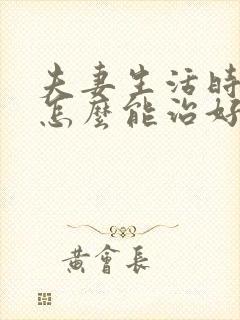 夫妻生活時
怎麼能治好
黃會長